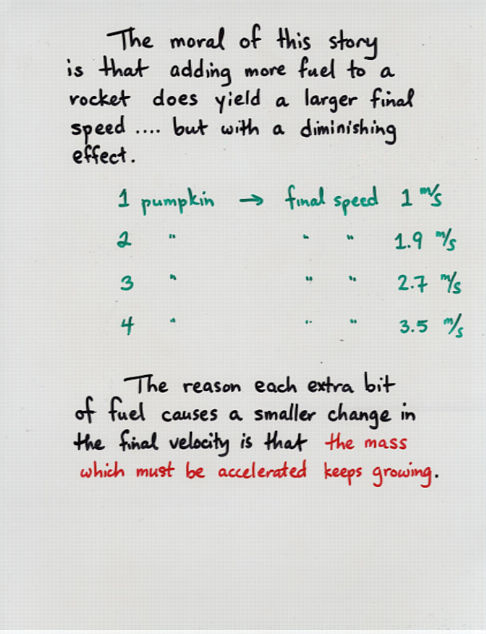 The moral of this story
is that adding more fuel to a
rocket does yield a larger final
speed .... but with a diminishing
effect.
1 pumpkin → final speed 1 m/s
2 " " " 1.9 m/s
3 " " " 2.7 m/s
4 " " " 3.5 m/s
The reason each extra bit
of fuel causes a smaller change in
the final velocity is that the mass
which must be accelerated keeps growing.